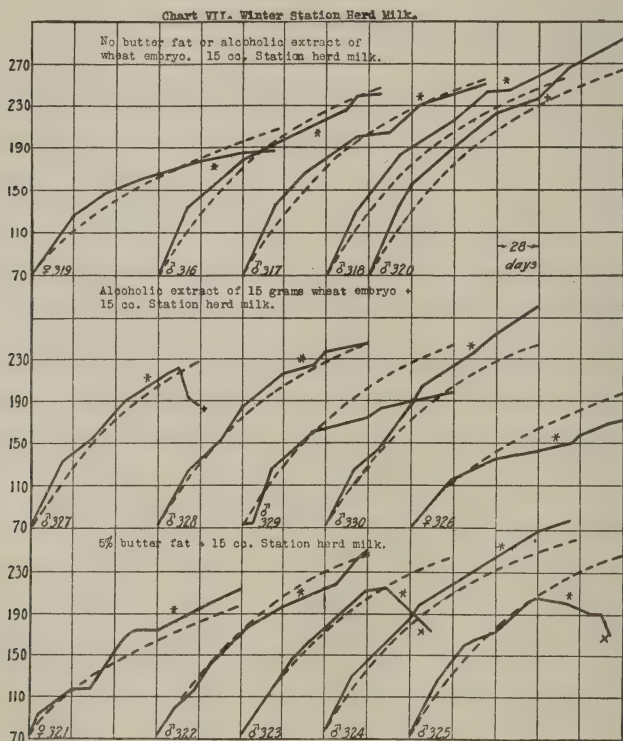 Chart VII. Winter Station Herd Milk.
No butter fat or alcoholic extract of
wheat embryo. 15 cc. Station herd milk.
270
230
190
150
110
70
* * * * *
♀319 ♂316 ♂317 ♂318 ♂320
28
days
Alcoholic extract of 15 grams wheat embryo +
15 cc. Station herd milk.
230
190
150
110
70
* * * *
♂327 ♂328 ♂329 ♂330 ♀326
5% butter fat + 15 cc. Station herd milk.
230
190
150
110
70
* * * * *
x x
♀321 ♂322 ♂323 ♂324 ♂325